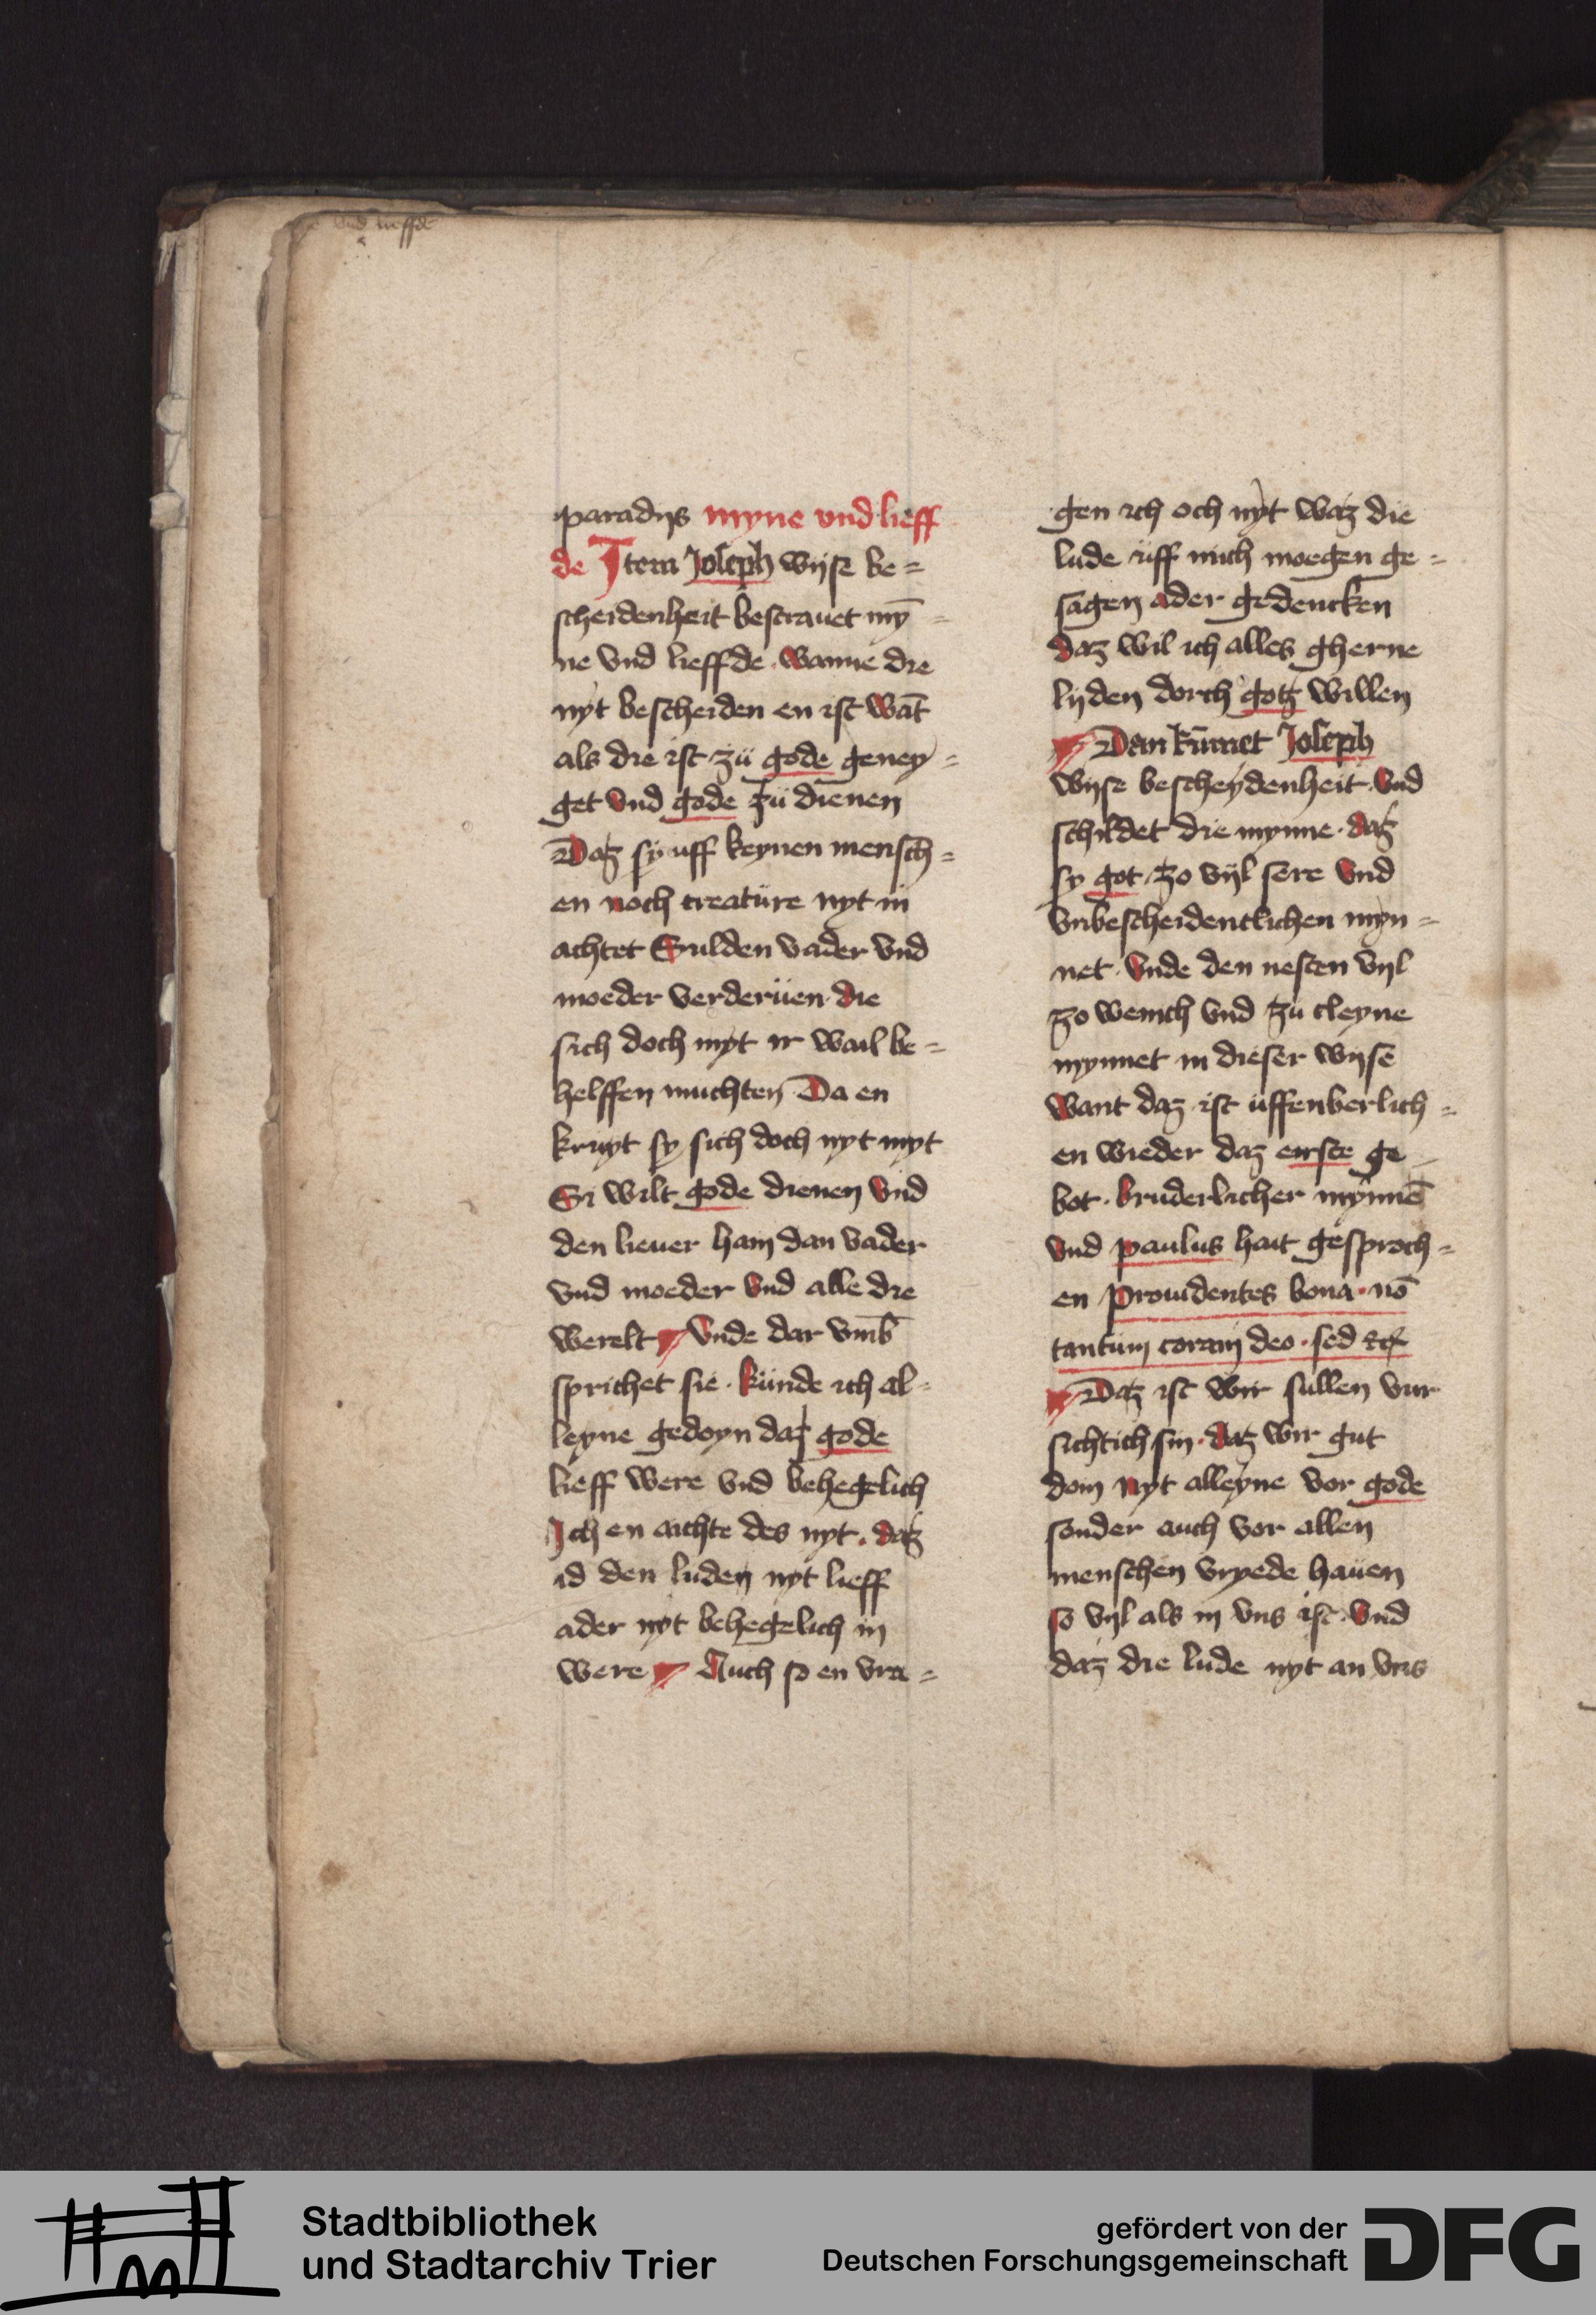 vnd lieffde
paradijs myne vnd lieff
de Item Joseph wijse be=
scheidenheit bestrauet mȳ=
ne vnd lieffde. wanne die
nyt bescheiden en ist wāt
als die ist zü gode geney=
get vnd gode zü dienen
Daz sy uff keynen mensch=
en noch creatüre nyt in
achtet Sulden vader vnd
moeder verderüen die
sich doch myt ir wail be=
helffen muchten Da en
kruyt sy sich doch nyt myt
Si wilt gode dienen vnd
den lieuer hain dan vader
vnd moeder vnd alle die
werelt vnde dar vmb
sprichet sie. künde ich al=
leyne gedoyn daz gode
lieff were vnd behegelich
Ich en achte des nyt. daz
id den luden nyt lieff
ader nyt behegelich in
were Auch so en vra=
gen ich och nyt waz die
lude üff mich moegen ge=
sagen ader gedencken
daz wil ich alles gherne
lijden dorch gotz willen
Dan kūmet Joseph
wijse bescheydenheit. vnd
schildet die mynne. daz
sy got zo vijl sere vnd
vnbescheidentlichen myn=
net. vnde den nesten vijl
zo wenich vnd zu cleyne
mynnet in dieser wijse
want daz ist üffenberlich=
en wieder daz eirste ge
bot. bruderlicher mynnē
vnd paulus hait gesproch=
en Prouidentes bona. nō
tantum coram deo. sed etc̄
Daz ist wir sullen vur
sichtich sin. daz wir gut
doin nyt alleyne vor gode
sonder auch vor allen
menschen vryede haüen
so vijl als in vns ist. vnd
daz die lude nyt an vns
Stadtbibliothek
und Stadtarchiv Trier
gefördert von der
Deutschen Forschungsgemeinschaft
DFG